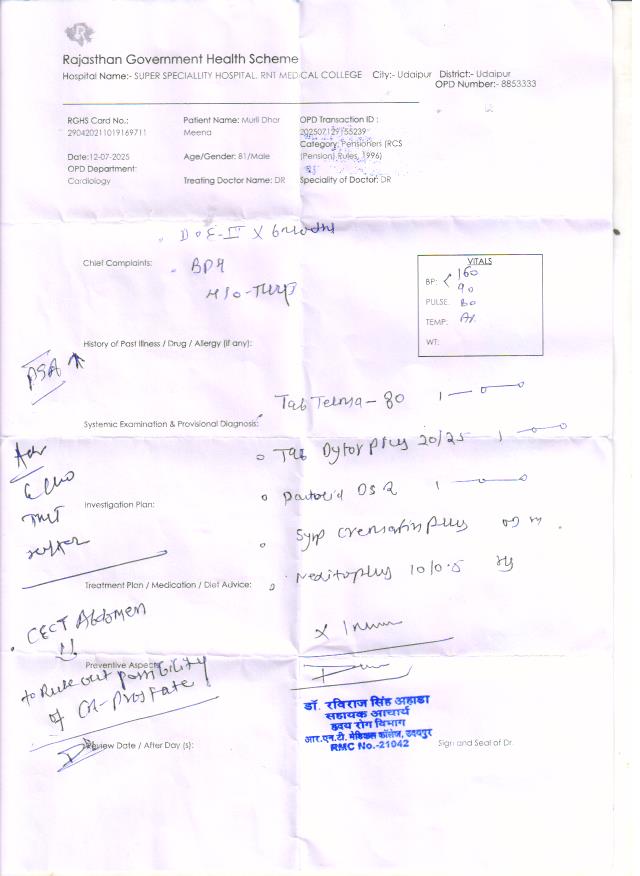 Rajasthan Government Health Scheme
Hospital Name:- SUPER SPECIALLITY HOSPITAL, RNT MEDICAL COLLEGE City:- Udaipur District:- Udaipur
OPD Number:- 8853333
RGHS Card No.:
290420211019169711
Patient Name: Murli Dhar
Meena
OPD Transaction ID :
Category: Pensioners (RCS
(Pension) Rules, 1996)
Date:12-07-2025
Age/Gender: 81/Male
OPD Department:
Cardiology
Treating Doctor Name: DR
Speciality of Doctor: DR
DOE-II X 6
Chief Complaints:
BPH
H/O-TURP
VITALS
BP: 160
90
PULSE: 80
TEMP:
WT:
History of Past Illness / Drug / Allergy (if any):
PSA ↑
Tab Telma-80 1-0-0
Systemic Examination & Provisional Diagnosis:
Tab Dytor plus 20/25 1-0-0
Echo
TMT
Investigation Plan:
1-0-0
Syp Cremaffin plus
Treatment Plan / Medication / Diet Advice:
10/0.5
CECT Abdomen
Preventive Aspects:
to Rule out possibility
of CA-Prostate
डॉ. रविराज सिंह अहाडा
सहायक आचार्य
हृदय रोग विभाग
आर.एन.टी. मेडिकल कॉलेज, उदयपुर
RMC No.-21042
Review Date / After Day (s):
Sign and Seal of Dr.